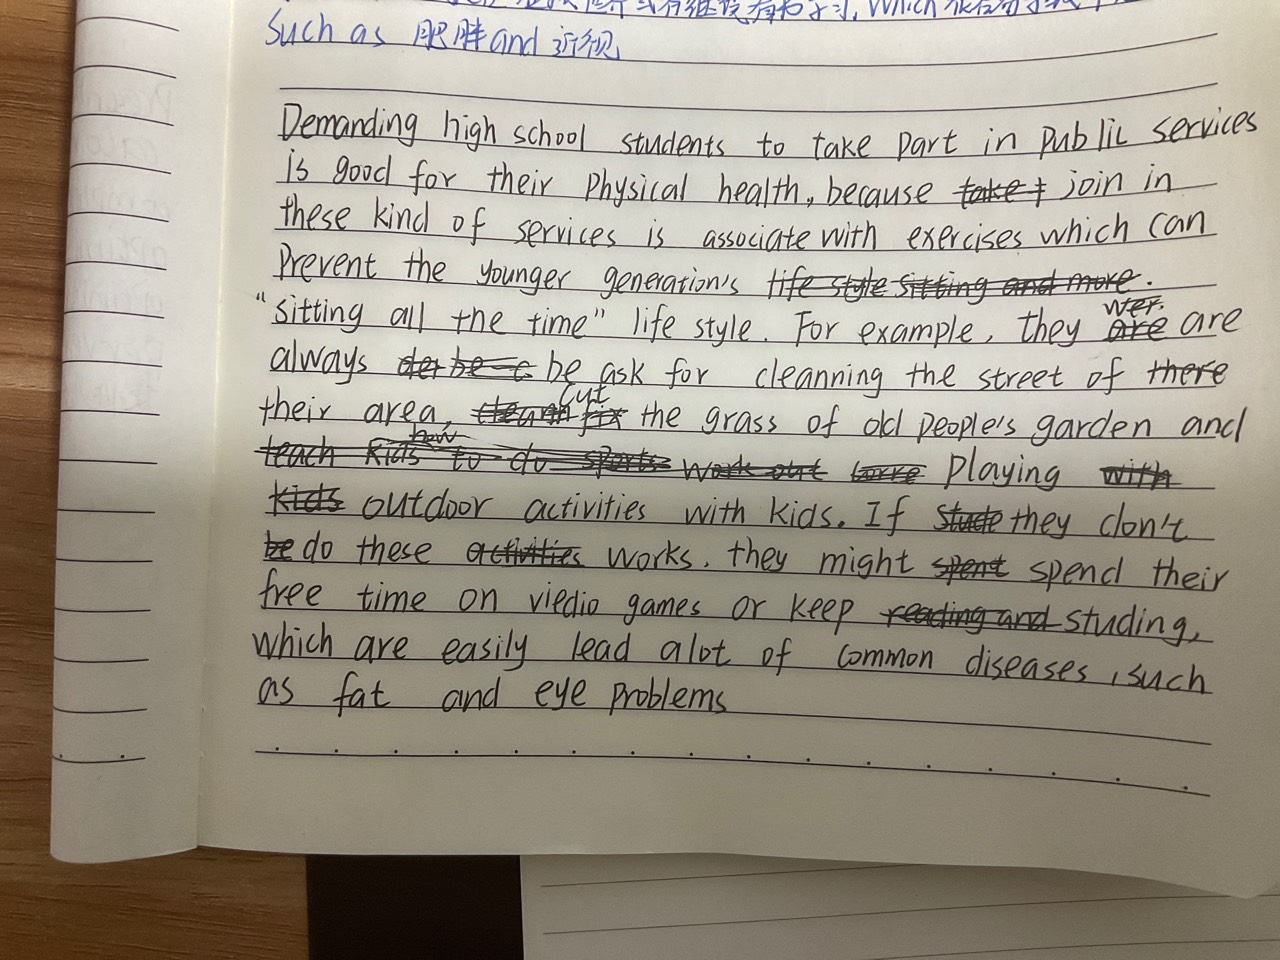 which
such as 肥胖 and 近视
Demanding high school students to take part in public services
is good for their physical health, because take t join in
these kind of services is associate with exercises which can
prevent the younger generation's life style sitting and more.
"sitting all the time" life style. For example, they are wer. are
always be be ask for cleanning the street of there
their area, clean fix cut the grass of old people's garden and
teach kids how to do sports work out playing with
kids outdoor activities with kids. If stude they don't
be do these activities works. they might spent spend their
free time on viedio games or keep reading and studing,
which are easily lead alot of common diseases, such
as fat and eye problems